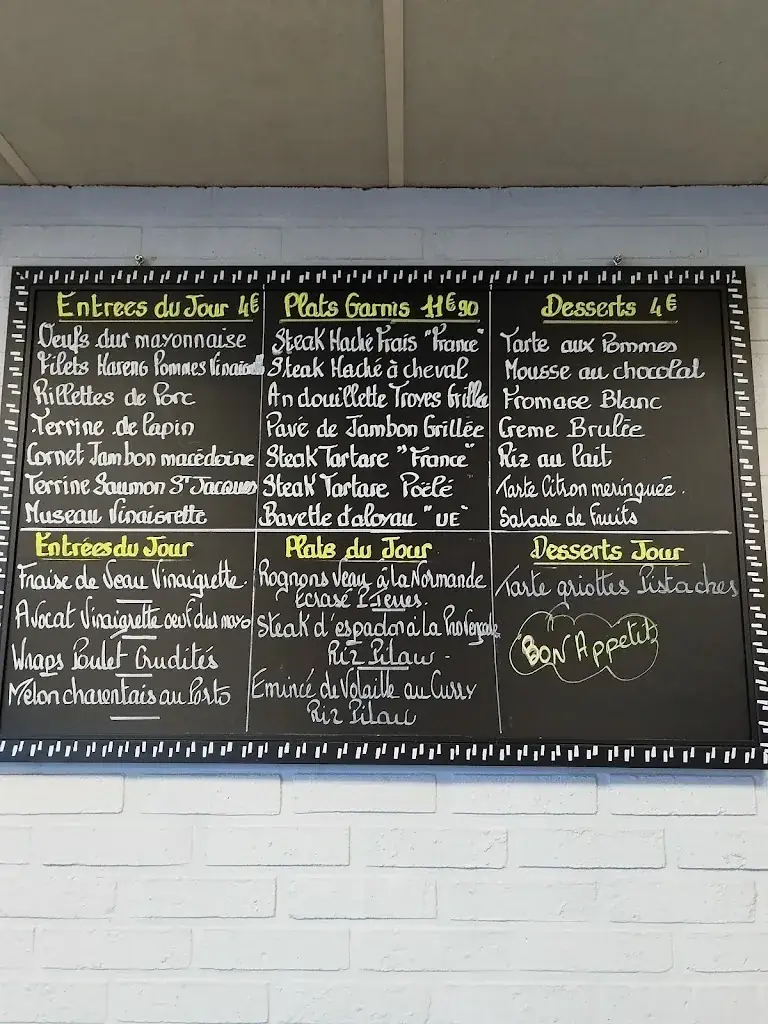 Entrees du Jour 4€
Oeufs dur mayonnaise
Filets Hareng Pommes Vinaig
Rillettes de Porc
Terrine de lapin
Cornet Jambon macédoine
Terrine Saumon St Jacques
Museau Vinaigrette
Plats Garnis 11€90
Steak Haché Frais "France"
Steak Haché à cheval
Andouillette Troyes Grillée
Pavé de Jambon Grillée
Steak Tartare "France"
Steak Tartare Poêlé
Bavette d'aloyau "UE"
Desserts 4€
Tarte aux Pommes
Mousse au chocolat
Fromage Blanc
Creme Brulée
Riz au lait
Tarte Citron meringuée.
Salade de Fruits
Entrées du Jour
Fraise de Veau Vinaigrette.
Avocat Vinaigrette oeuf dul mayo
Wraps Poulet Crudités
Melon charentais au Porto
Plats du Jour
Rognons Veau à la Normande
Ecrasé P.Terres.
Steak d'espadon à la Provençale
Riz Pilaw -
Emincé de Volaille au Curry
Riz Pilaw
Desserts Jour
Tarte griottes Pistaches
Bon Appetit